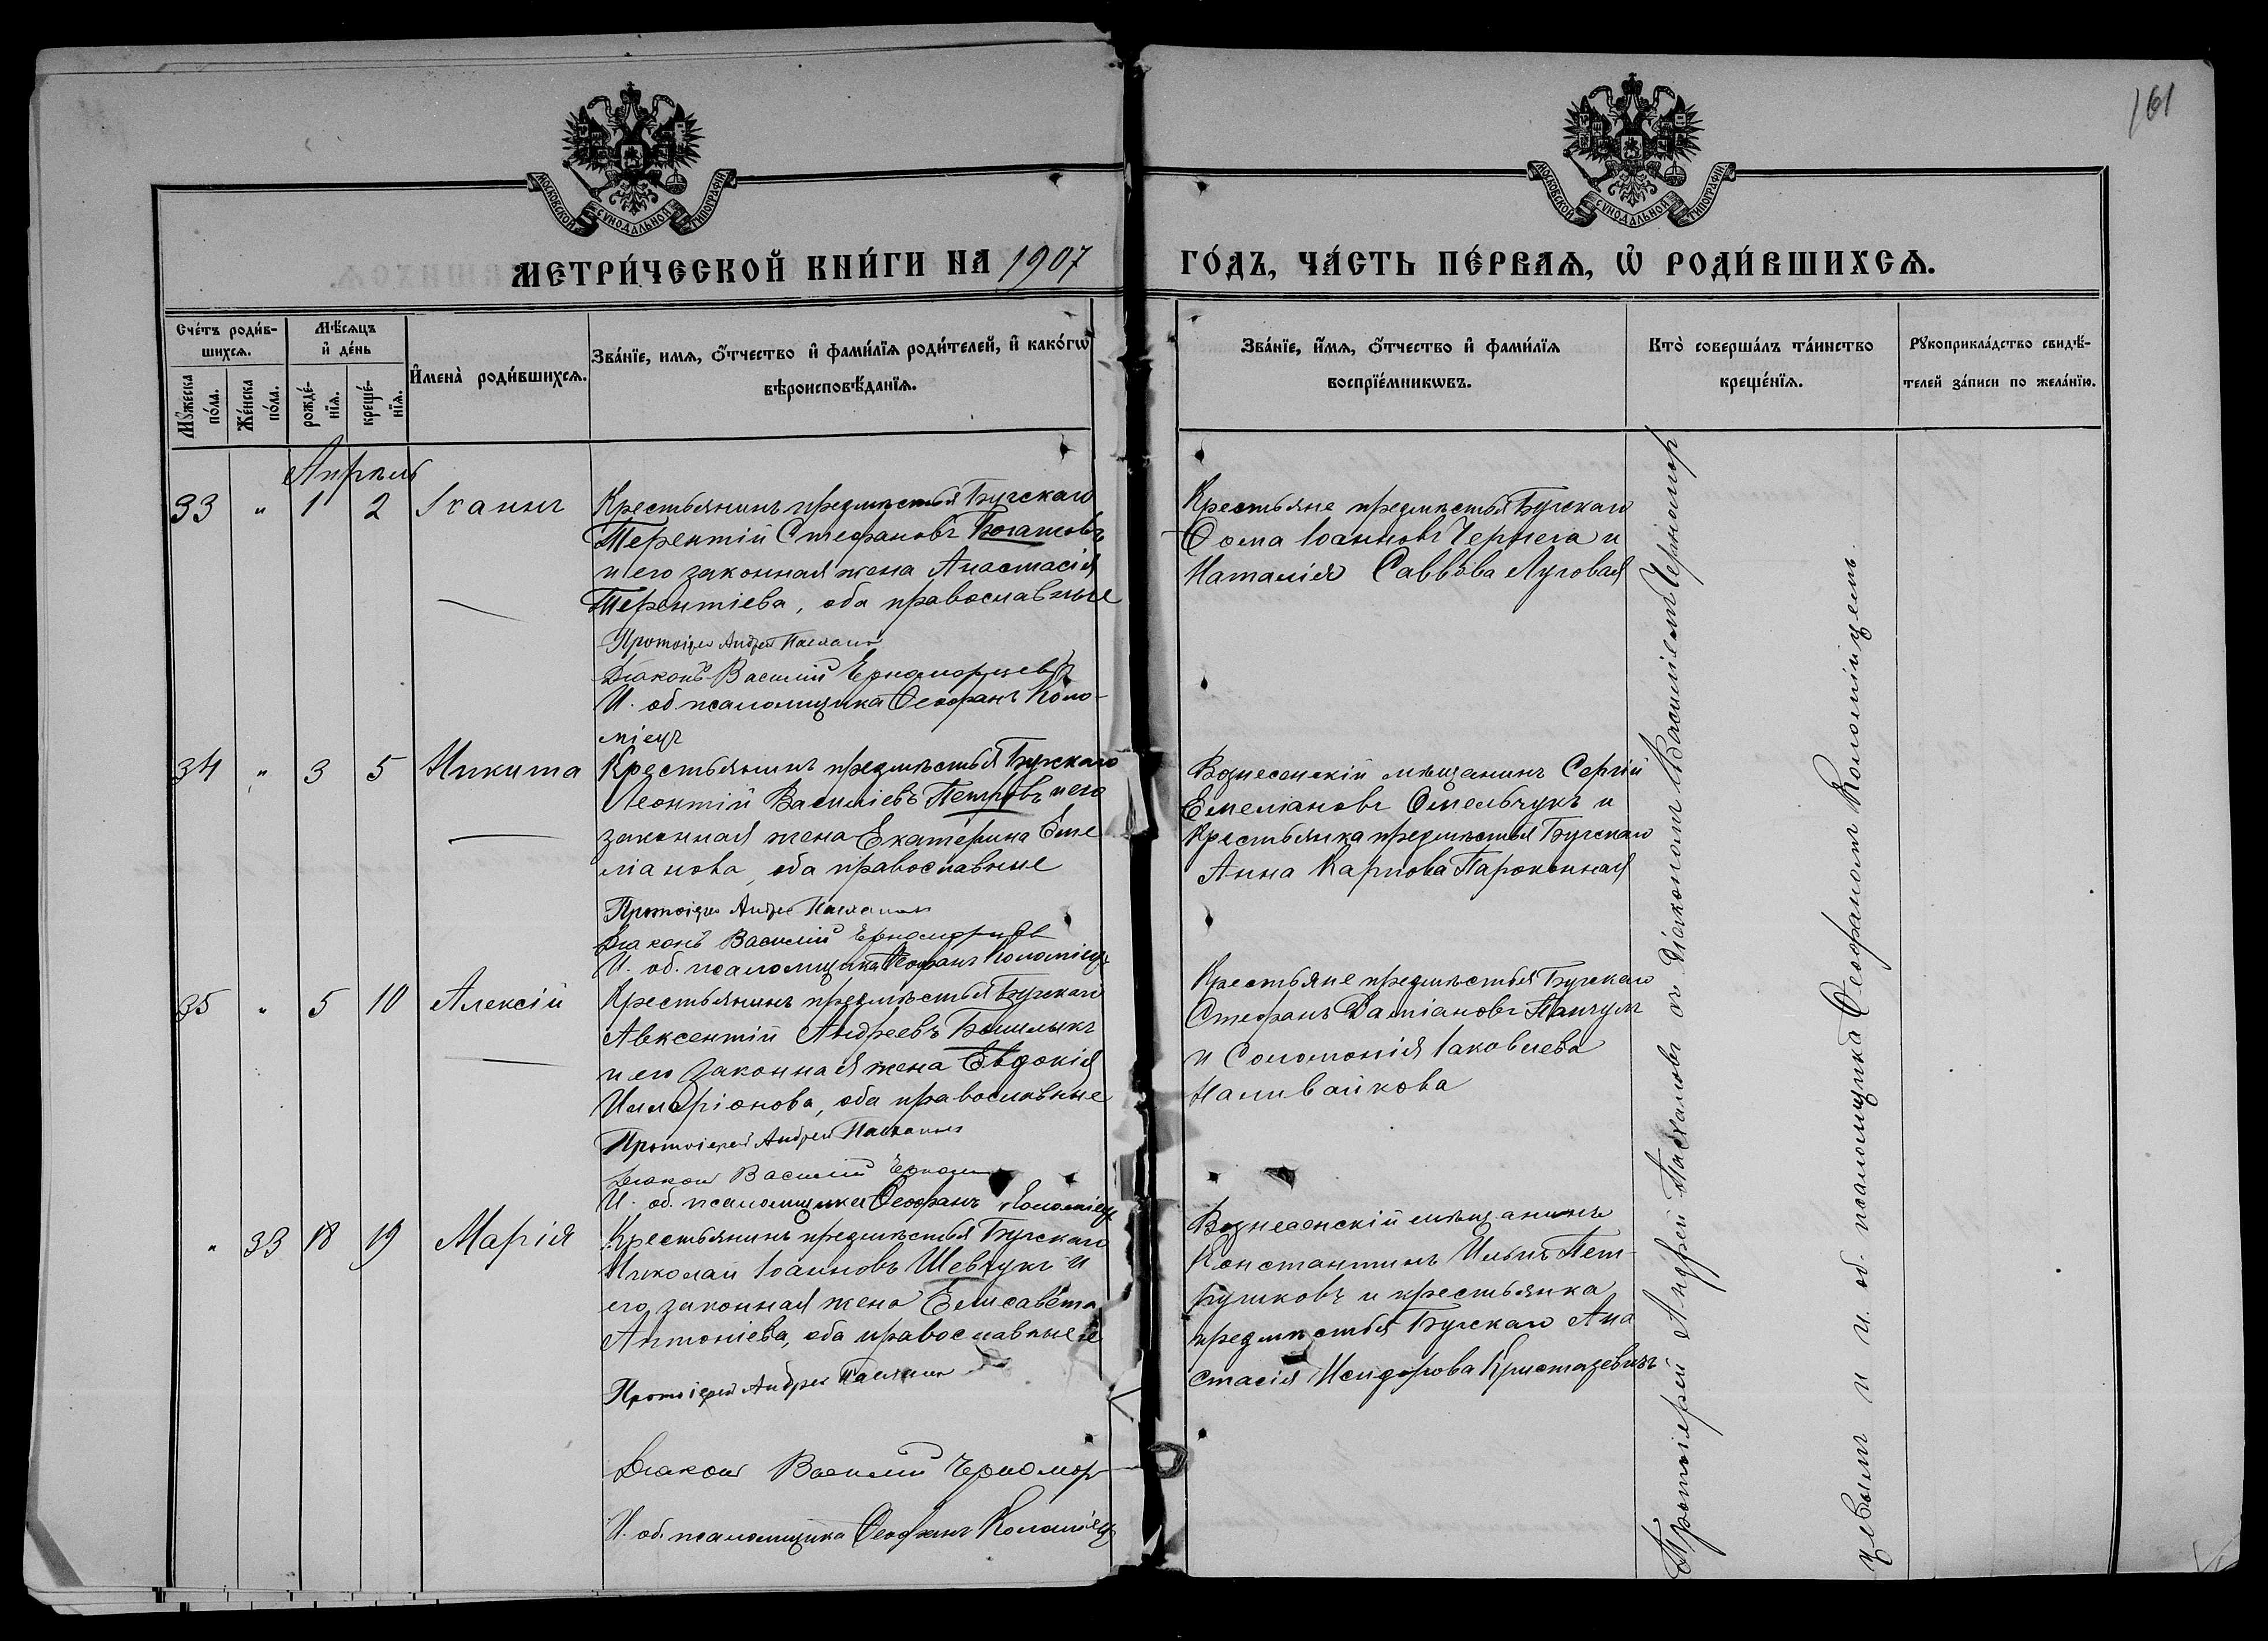 161
МОСКОВСКОЙ СѴНОДАЛЬНОЙ ТИПОГРАФІИ
МОСКОВСКОЙ СѴНОДАЛЬНОЙ ТИПОГРАФІИ
МЕТРИ́ЧЕСКОЙ КНИ́ГИ НА 1907
ГО́ДЪ, ЧА́СТЬ ПЕ́РВАѦ, Ѽ РОДИ́ВШИХСѦ.
Сче́тъ роди́в-
шихсѧ.
Мꙋжеска
по́ла.
Же́нска
по́ла.
Мѣ́сѧцъ
и҆ де́нь
рожде́-
нїѧ.
креще́-
нїѧ.
И҆мена̀ роди́вшихсѧ.
Зва́нїе, имѧ, ѻ҆́тчество и҆ фами́лїѧ роди́телей, и҆ како́гѡ
вѣроисповѣ́данїѧ.
Зва́нїе, и҆́мѧ, ѻ҆́тчество и҆ фами́лїѧ
воспрїе́мникѡвъ.
Кто̀ соверша́лъ та́инство
креще́нїѧ.
Рꙋкоприкла́дство свидѣ́-
телей за́писи по жела́нїю.
Апрѣль
33 " 1 2 Іоаннъ
Крестьянинъ предмѣстья Бугскаго
Терентій Стефановъ Богатовъ
и его законная жена Анастасія
Терентіева, оба православные
Протоіерей Андрей Пасхаловъ
Діаконъ Василій Черноморцевъ
И. об. псаломщика Ѳеофанъ Коло-
міецъ
Крестьяне предмѣстья Бугскаго
Ѳома Іоанновъ Чернега и
Наталія Саввова Луговая
34 " 3 5 Никита
Крестьянинъ предмѣстья Бугскаго
Леонтій Василіевъ Петровъ и его
законная жена Екатерина Еме
ліанова, оба православные
Протоіерей Андрей Пасхаловъ
Діаконъ Василій Черноморцевъ
И. об. псаломщика Ѳеофанъ Коломіецъ
Вознесенскій мѣщанинъ Сергій
Емеліановъ Омельчукъ и
Крестьянка предмѣстья Бугскаго
Анна Карпова Пароконная
35 " 5 10 Алексій
Крестьянинъ предмѣстья Бугскаго
Авксентій Андреевъ
и его законная жена Евдокія
Илларіонова, оба православные
Протоіерей Андрей Пасхаловъ
Діаконъ Василій
И. об. псаломщика Ѳеофанъ Коломіецъ
Крестьяне предмѣстья Бугскаго
Стефанъ Даміановъ
и Соломонія Іаковлева
Наливайкова
" 33 18 19 Марія
Крестьянинъ предмѣстья Бугскаго
Николай Іоанновъ Шевчукъ и
его законная жена Елисавета
Антоніева, оба православные
Протоіерей Андрей Пасхаловъ
Діаконъ Василій Черномор
И. об. псаломщика Ѳеофанъ Коломіецъ
Вознесенскій мѣщанинъ
Константинъ Ильинъ Пет-
рушковъ и крестьянка
предмѣстья Бугскаго Ана
стасія Исидорова Кристазевичъ
Протоіерей Андрей Пасхаловъ съ Діакономъ Василіемъ Черномор
цевымъ и и. об. псаломщика Ѳеофаномъ Коломійцемъ.